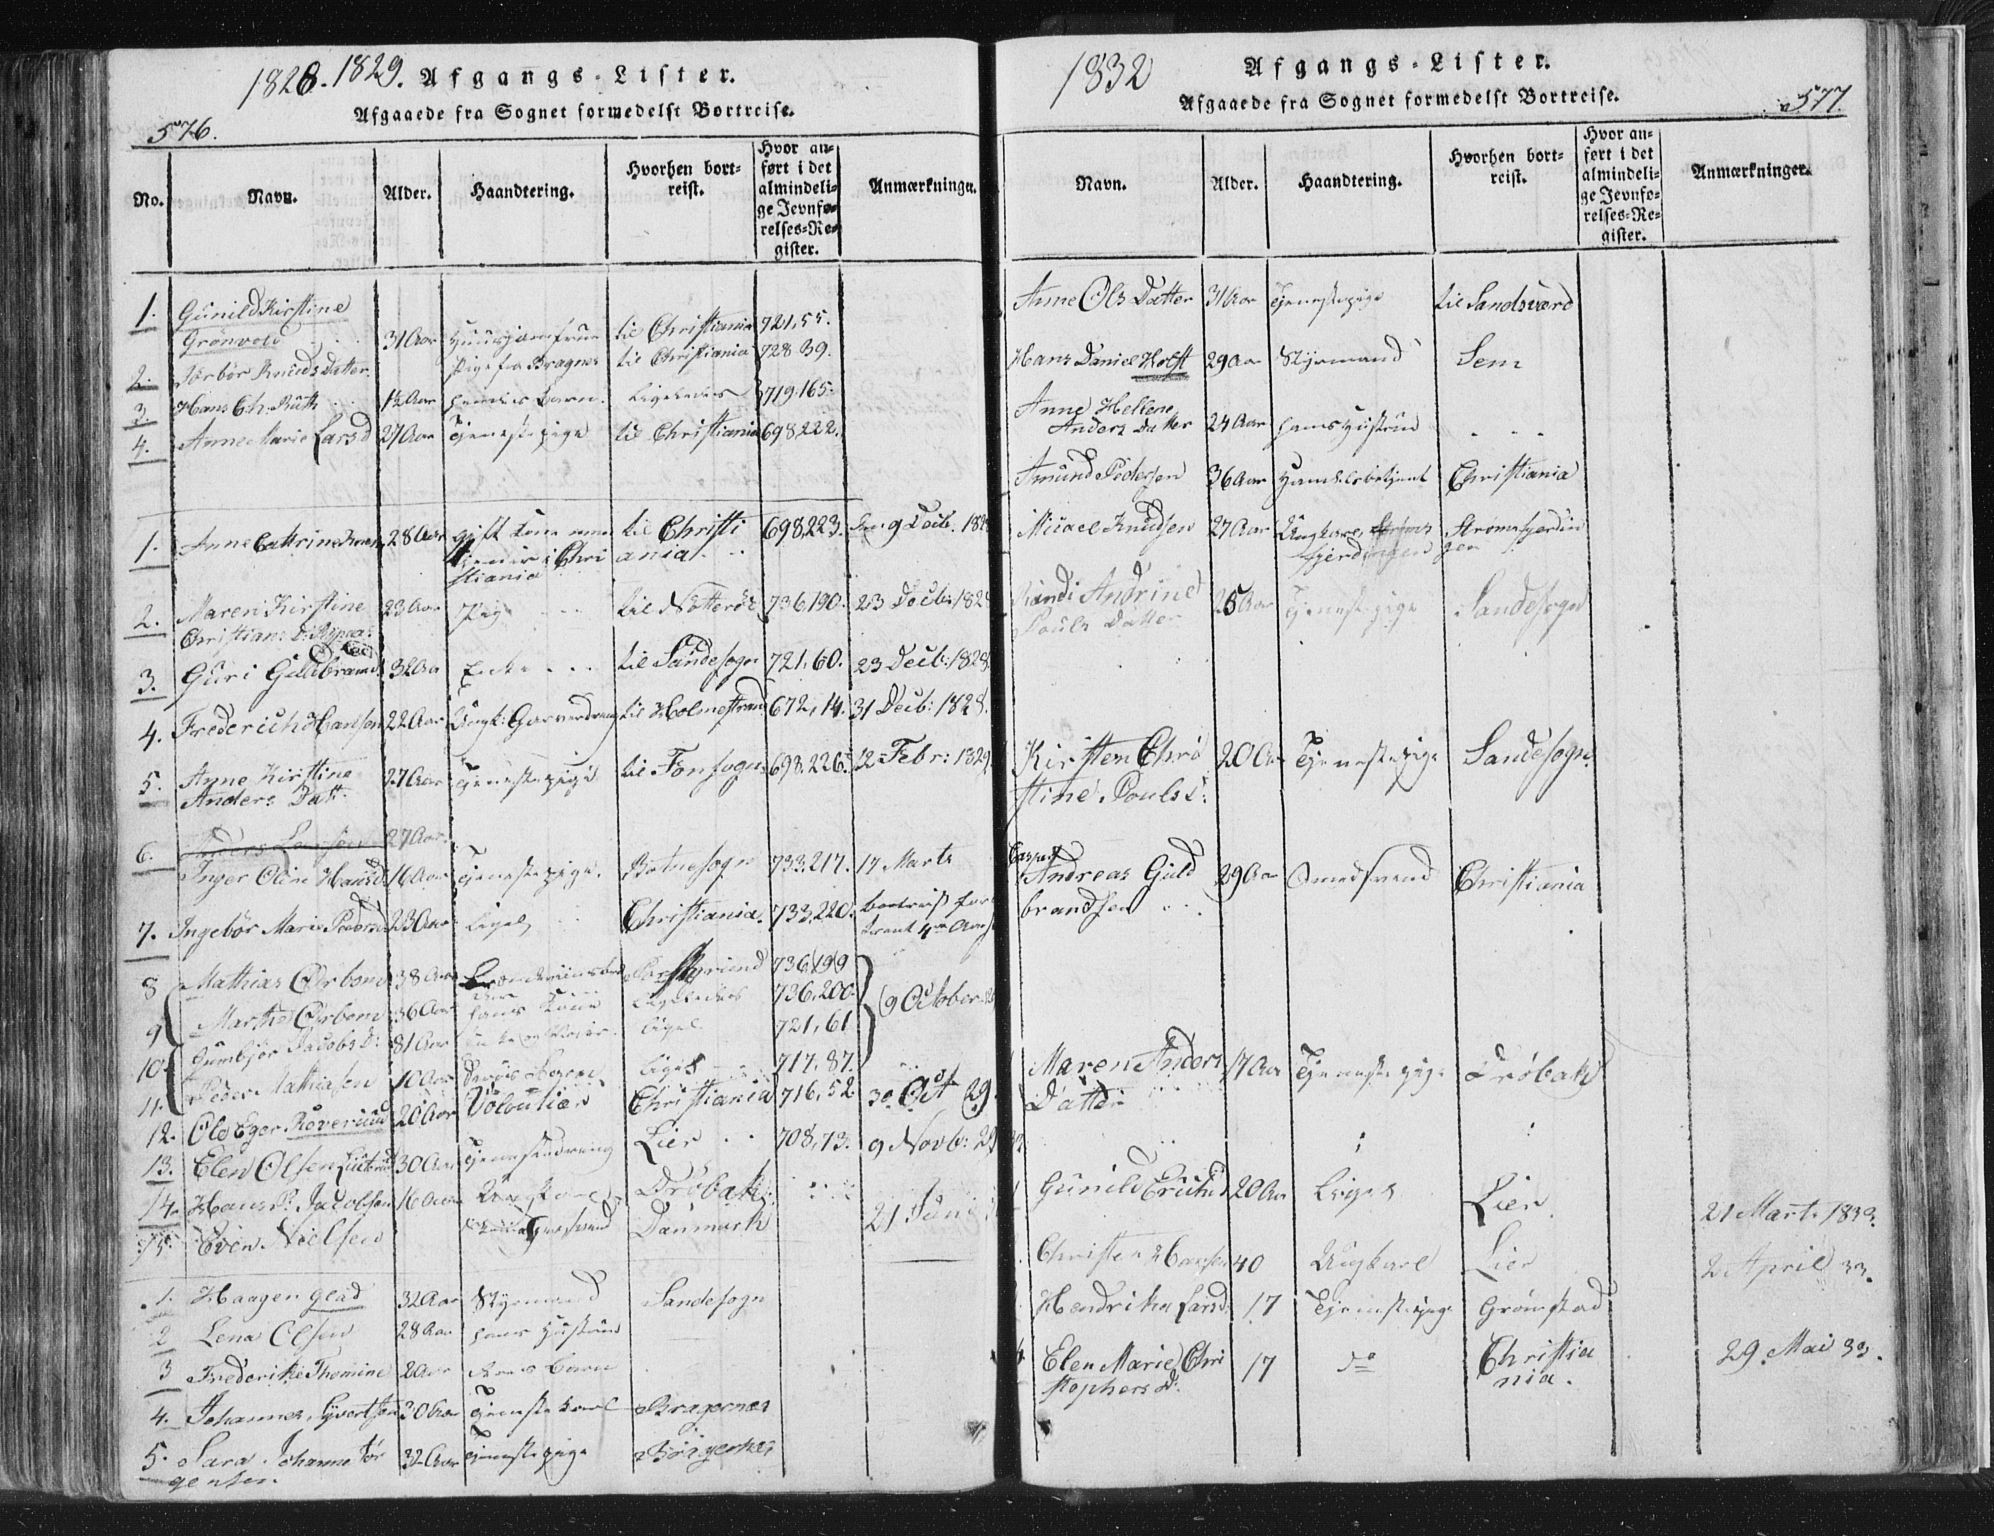 1828. 1829. Afgangs-Lister.
Afgaaede fra Sognet formedelst Bortreise.
576.
No. Navn. Alder. Haandtering. Hvorhen bortreist. Hvor anført i det almindelige Jevnførelses-Register. Anmærkninger.
1. Gunild Kirstine
Grønvold 31 Aar Huusjomfrue til Christiania 721,55.
2. Knuds Datter Pige fra Bragnes til Christiania 728 39.
3. Hans Ch. Ruth Barn. Ligeledes 719.165.
4. Anne Marie Larsd 27 Aar Tjenestepige til Christiania 698 222.
1. Anne Cathrine 28 Aar gift Kone til Christi 698,223. 9 Decb. 182
i Chri ania
stiania
2. Maren Kirstine 23 Aar Pige til Nøtterøe 736,190. 23 Decb: 182
Christians D.
3. Guri Gulbrands 32 Aar Enke til Sandesogn 721,60. 23 Decb: 1828.
4. Frederich Hansen 22 Aar Ungk: Garverdreng til Holmestrand 672,14. 31 Decb: 1828.
5. Anne Kirstine 27 Aar Tjenestepige til Fon sogn 698,226. 12 Febr: 1829
Anders Datt.
6. Anders 27 Aar.
Inger Oline Hansd. 16 Aar Tjenestepige. Botnesogn 733.217. 17 Marts
7. Ingebør Marie Pedersd 23 Aar Ligel. Christiania. 733,220. bortreist for
8 Mathias 38 Aar 736,199
9 Marthe 36 Aar hans Kone Ligeledes 736,200. 9 October.
10. Gunbjør Jacobs D: 81 Aar Ligel. 721,61
11. Peder Mathiasen 10 Aar deres Søren Ligel. 717,87.
12. Ole Eger Røverud 20 Aar Volontiær Christiania 716,52 30 Oct 29.
13. Elen Olsen 30 Aar Tjenestedreng Lier 708,73. 9 Novb: 29
14. Hans P. Jacobsen 16 Aar Drøbak
15. Even Nielsen Danmark 21 Juni
1. Haagen Glad 32 Aar Styrmand Sandesogn
2 Lena Olsen 28 Aar hans Hustrue
3 Frederike Thomine 2 Aar deres Barn
4. Johannes Syvertsen 30 Aar Tjenestekarl Bragernæs
5. Sara Johanne Jør 32 Aar Tjenestepige Bragernæs
gensen.
1832 Afgangs-Lister.
Afgaaede fra Sognet formedelst Bortreise.
577.
Navn. Alder. Haandtering. Hvorhen bortreist. Hvor anført i det almindelige Jevnførelses-Register. Anmærkninger.
Anne Ols Datter 31 Aar Tjenestepige til Sandsværd
Hans Daniel Holst 29 Aar Styrmand Sem
Anne Hellene
Anders Datter 24 Aar hans Hustrue
Amund Pedersen 36 Aar Handelsbetjent Christiania
Micael Knudsen 27 Aar Ungkarl, Strømsfjerdin
fjerdingen gen
Randi Andrine 25 Aar Tjenestepige Sandesogn
Pouls Datter
Kirsten Chri 20 Aar Tjenestepige Sandesogn.
stine Pouls D:
Casper
Andreas Guld 29 Aar Smedsvend Christiania
brandsen
Maren Anders 17 Aar Tjenestepige Drøbak
Datter
Gunild 20 Aar Ligel. Lier 21 Mart. 1833.
Christen Hansen 40 Ungkarl Lier 2 April 33.
Hendrikke Larsd. 17 Tjenestepige Grømstad
Elen Marie Chri 17 do Christia 29 Mai 33.
stophers D: nia.